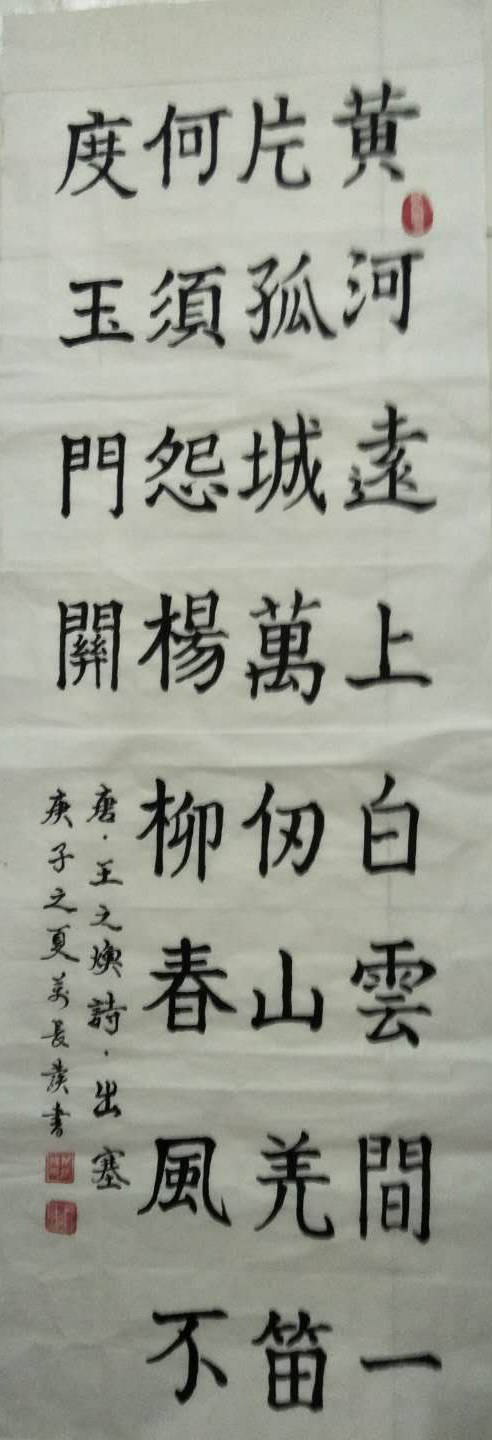 黄河遠上白雲間一
片孤城萬仞山羌笛
何須怨楊柳春風不
度玉門關
唐·王之煥詩·出塞
庚子之夏萬長發书